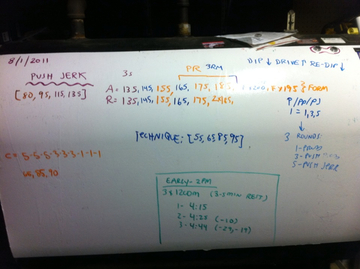 8/1/2011
PUSH JERK
[80, 95, 115, 135]
3s
PR 3RM
A = 135, 145, 155, 165, 175, 185
R = 135, 145, 155, 165, 175,
DIP ↓ DRIVE ↑ RE-DIP ↓
FORM
P/PP/PJ
1 = 1,3,5
↓
3 ROUNDS
1-POWER
3-PUSH
5-PUSH JERK
TECHNIQUE: [55, 65, 85, 95]
C = 5-5-5-3-3-3-1-1-1
65, 85, 90
EARLY - 2PM
3 x 1200m (3-5 min REST)
1- 4:15
2- 4:35 (-20)
3- 4:49